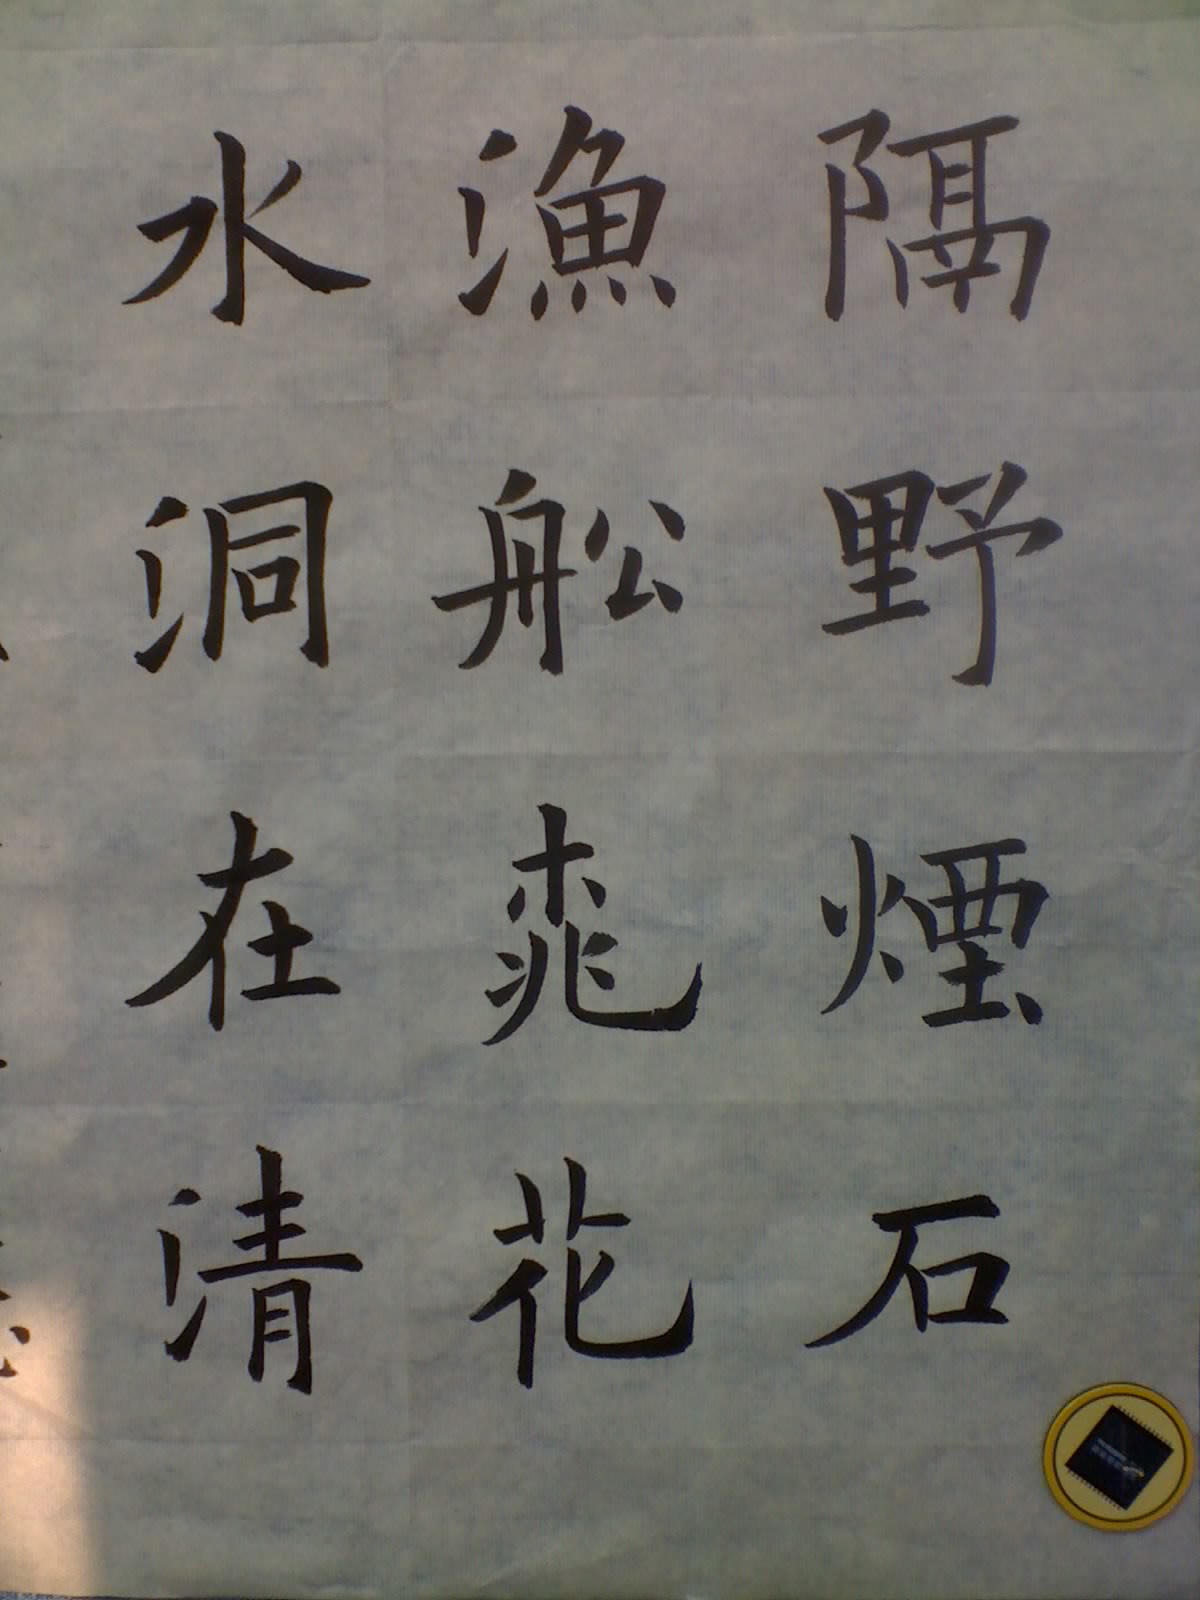 隔野煙石
漁舩桃花
水洞在清